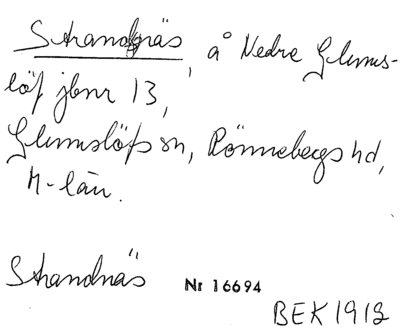 Strandnäs, å Nedre Glums-
löf jbnr 13,
Glumslöfs sn, Rönnebergs hd,
M-län.
Strandnäs" Nr 16694
BEK 1912